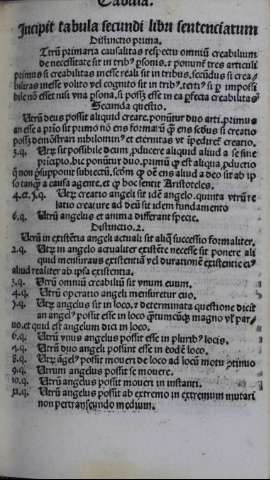 Tabula.
Incipit tabula secundi libri sententiarum
Distinctio prima.
Utrū primaria causalitas respectu omniū creabilium
de necessitate sit in tribꝰ psonis. ⁊ ponunt̄ tres articuli
primus si creabilitas in esse reali sit in tribus, secūdus si crea
bilitas in esse volito vel cognito sit in tribꝰ. tertiꝰ si ꝑ impossi
bile nō esset nisi vna psona, si posset esse in ea
Secunda questio.
Utrū deus possit aliquid creare. ponunt̄ duo arti. primus
an esse a prio sit primo nō ens formaꝝ
possꝫ demōstrari nobilitatꝭ
3.q. Utꝝ sit possibile deum ꝓducere aliquid aliud a se sine
pricipio. hic ponūtur duo. primū ꝙ est aliqua ꝓductio
q̄ non p̄supponit subiectū, scdm ꝙ oē ens aliud a deo sit ab ip
so tanqꝫ a causa agente, et ꝙ hoc sensit Aristoteles.
4. et .5.q. Utꝝ creatio angeli sit idē angelo. quinta vtrū re
latio creature ad deū sit idem fundamento
6.q. Utrū angelus et anima differant specie.
Distinctio.2.
Utrū in existētia angeli actuali sit aliq̄ successio formaliter.
2.q. Utꝝ in angelo actualiter existēte necesse sit ponere ali
quid mensurās existentiā vel durationē existentie
aliud realiter ab ipsa existentia.
3.q. Utrū omniū creabiliū sit vnum euum.
4.q. Utrū operatio angeli mensuretur euo.
5.q. Utꝝ angelus sit in loco, ⁊ determinata questione dicit
an angelꝰ possit esse in loco quātumcūqꝫ magno vꝉ par
uo. et quid est angelum dici in loco.
6.q. Utrū vnus angelus possit esse in pluribꝰ locis.
7.q. Utrū duo angeli possint esse in eodē loco.
8.q. Utꝝ āgelꝰ possit moueri de loco ad locū motu ꝯtinuo
9.q. Utrum angelus possit se mouere.
10.q. Utrū angelus possit moueri in instanti.
11.q. Utrū angelus possit ab extremo in extremum mutari
non pertranseundo medium.